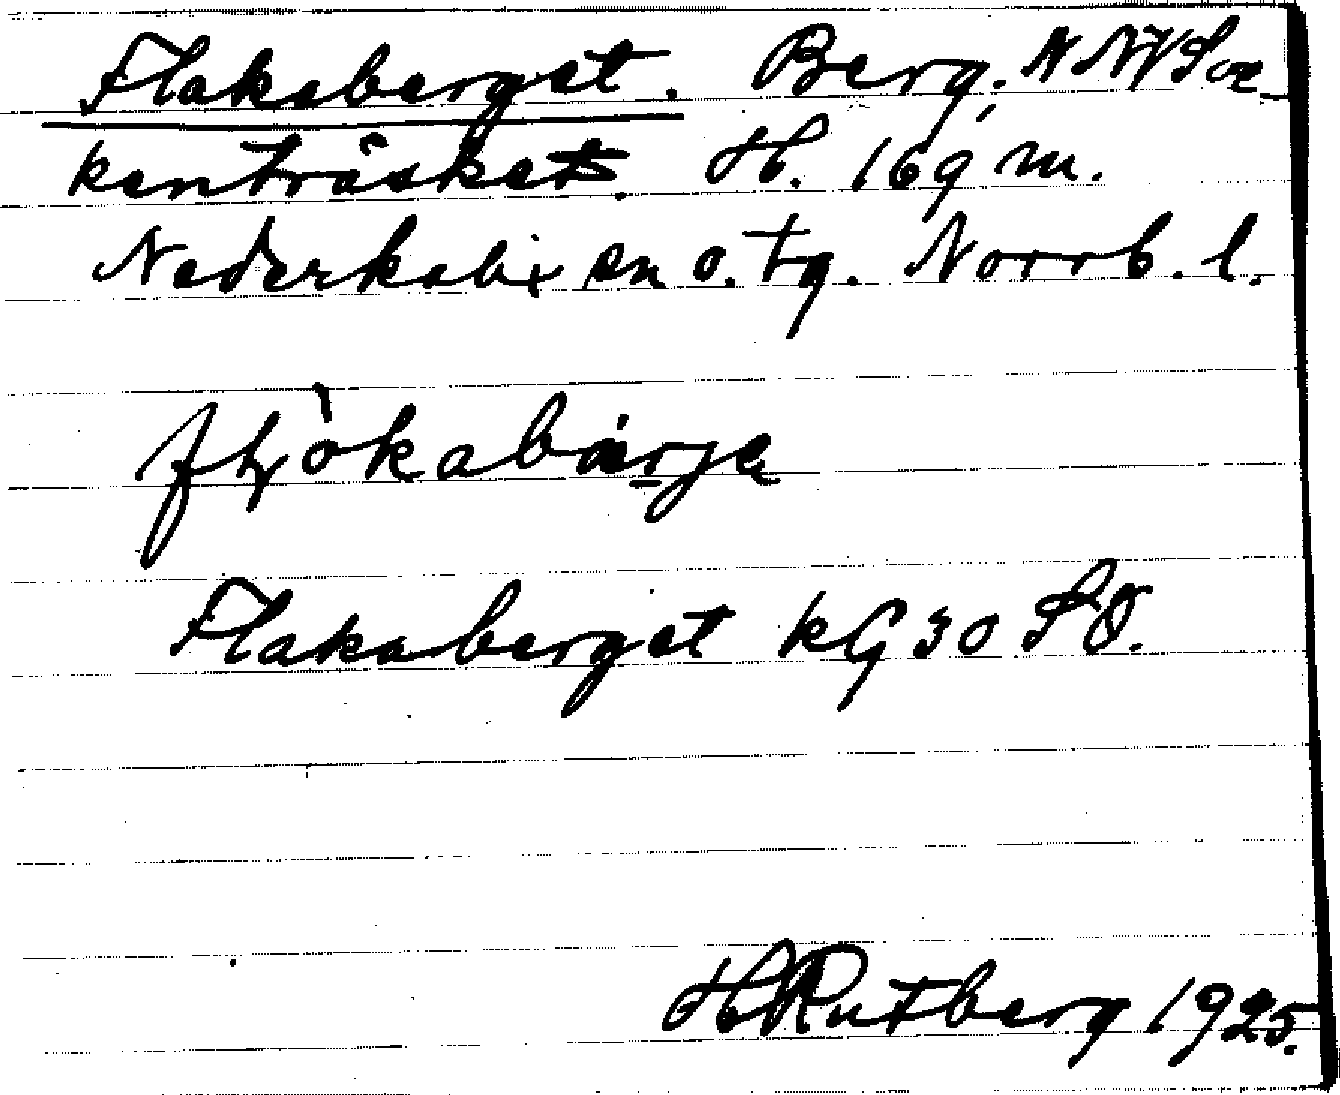 Flakaberget. Berg, NNV Soc-
kenträsket. H. 169 m.
Nederkalix sn o. tg. Norrb. l.
Flakaberget kG 30 SO.
H Rutberg 1925.